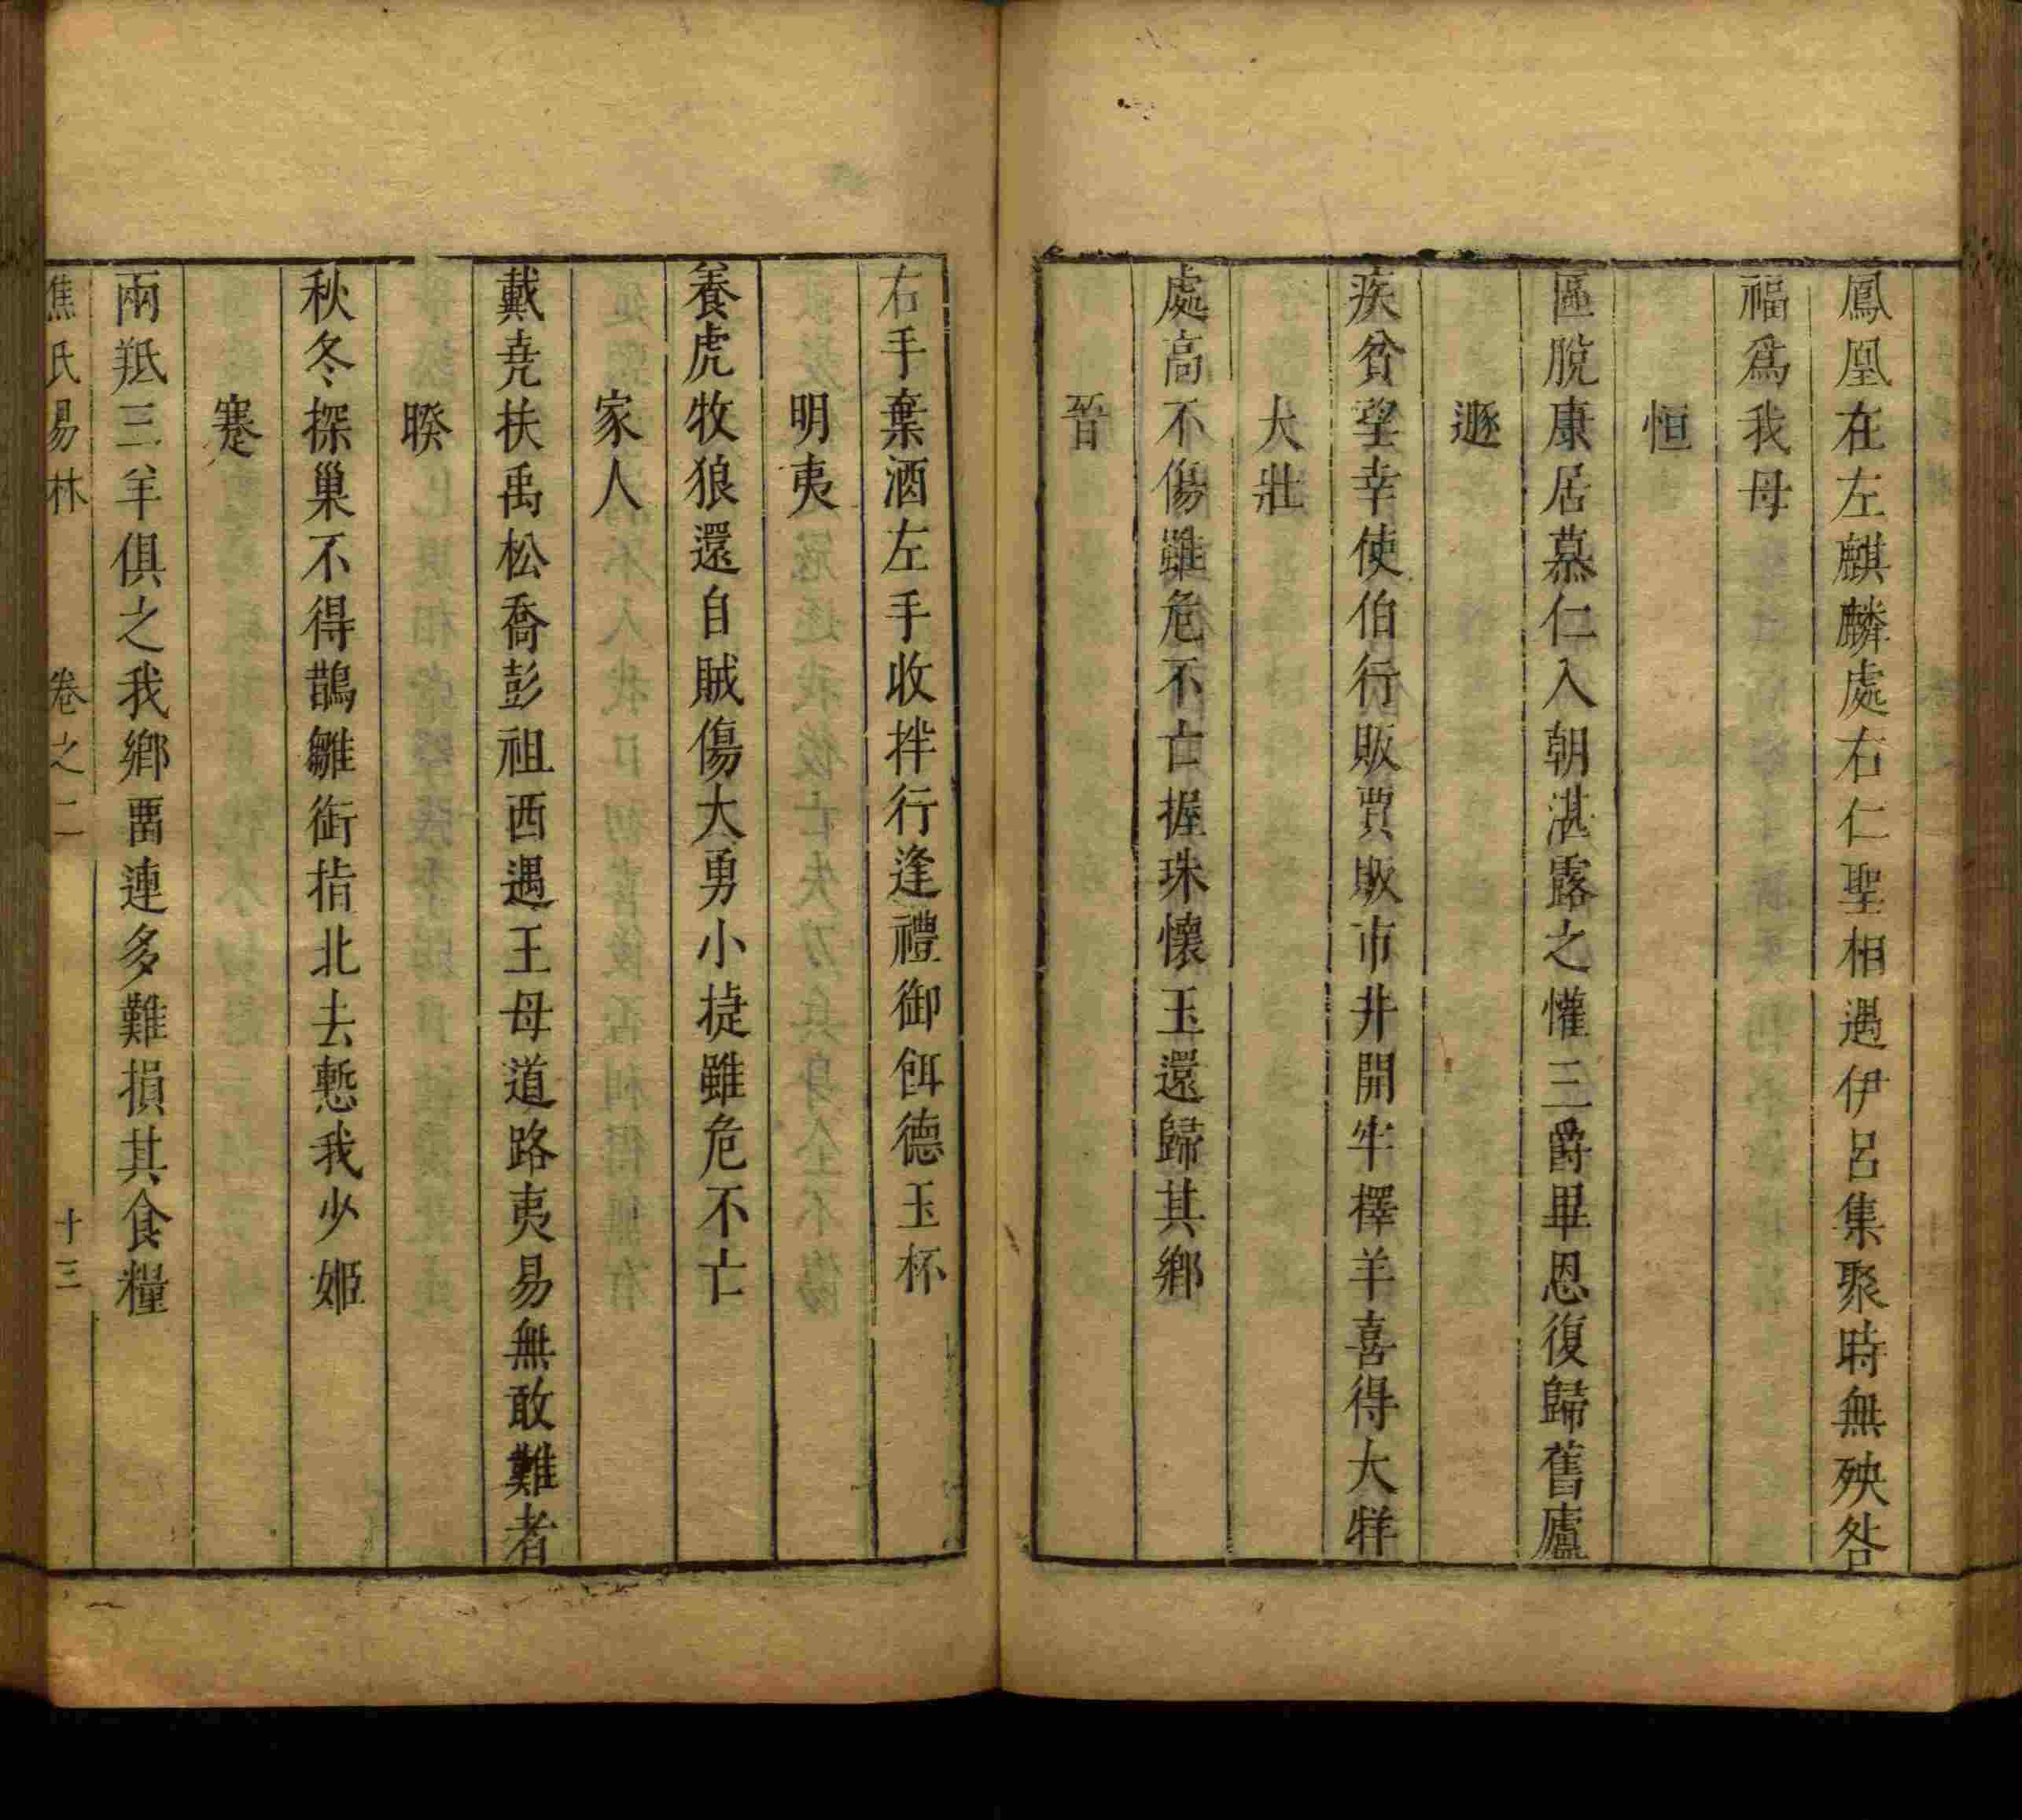 鳳凰在左麒麟處右仁聖相遇伊呂集聚時無殃咎
福爲我母
恒
區脫康居慕仁入朝湛露之懽三爵畢恩復歸舊廬
遯
疾貧望幸使伯行販賈販市井開牢擇羊喜得大牂
大壯
處高不傷雖危不亡握珠懷玉還歸其鄉
晉
右手棄酒左手收拌行逢禮御餌德玉杯
明夷
養虎牧狼還自賊傷大勇小捷雖危不亡
家人
戴堯扶禹松喬彭祖西遇王母道路夷易無敢難者
睽
秋冬探巢不得鵲雛銜指北去慙我少姬
蹇
兩羝三羊俱之我鄉畱連多難損其食糧
焦氏易林 卷之二 十三